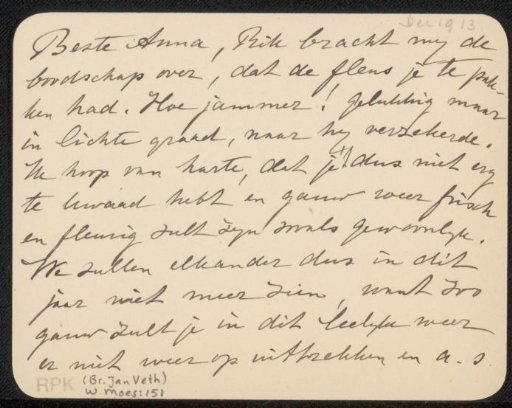 Dec 1913
Beste Anna, Rik bracht my de
boodschap over, dat de flens je te pak-
ken had. Hoe jammer! gelukkig maar
in lichte graad, naar hy verzekerde.
Ik hoop van harte, dat je 't dus niet erg
te kwaad hebt en gauw weer frisch
en fleurig zult zyn zooals gewoonlyk.
We zullen elkander dus in dit
jaar niet meer zien, want zoo
gauw zult je in dit leelyke weer
er niet weer op uittrekken en a.s.
RPK (Br. Jan Veth)
W. Moes: 151